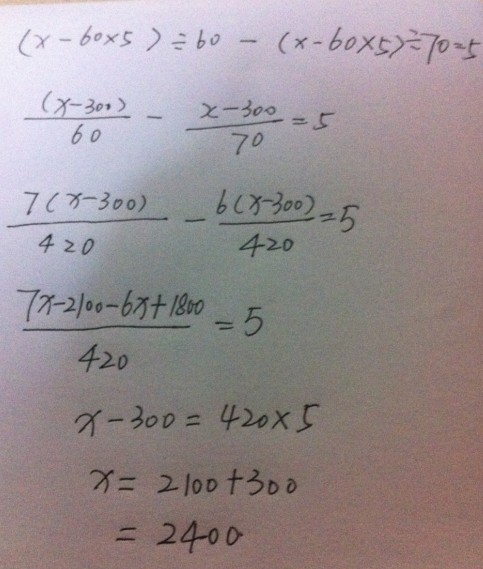 (x-60×5)÷60-(x-60×5)÷70=5
(x-300)/60 - x-300/70 = 5
7(x-300)/420 - 6(x-300)/420 = 5
7x-2100-6x+1800/420 = 5
x-300=420×5
x=2100+300
=2400